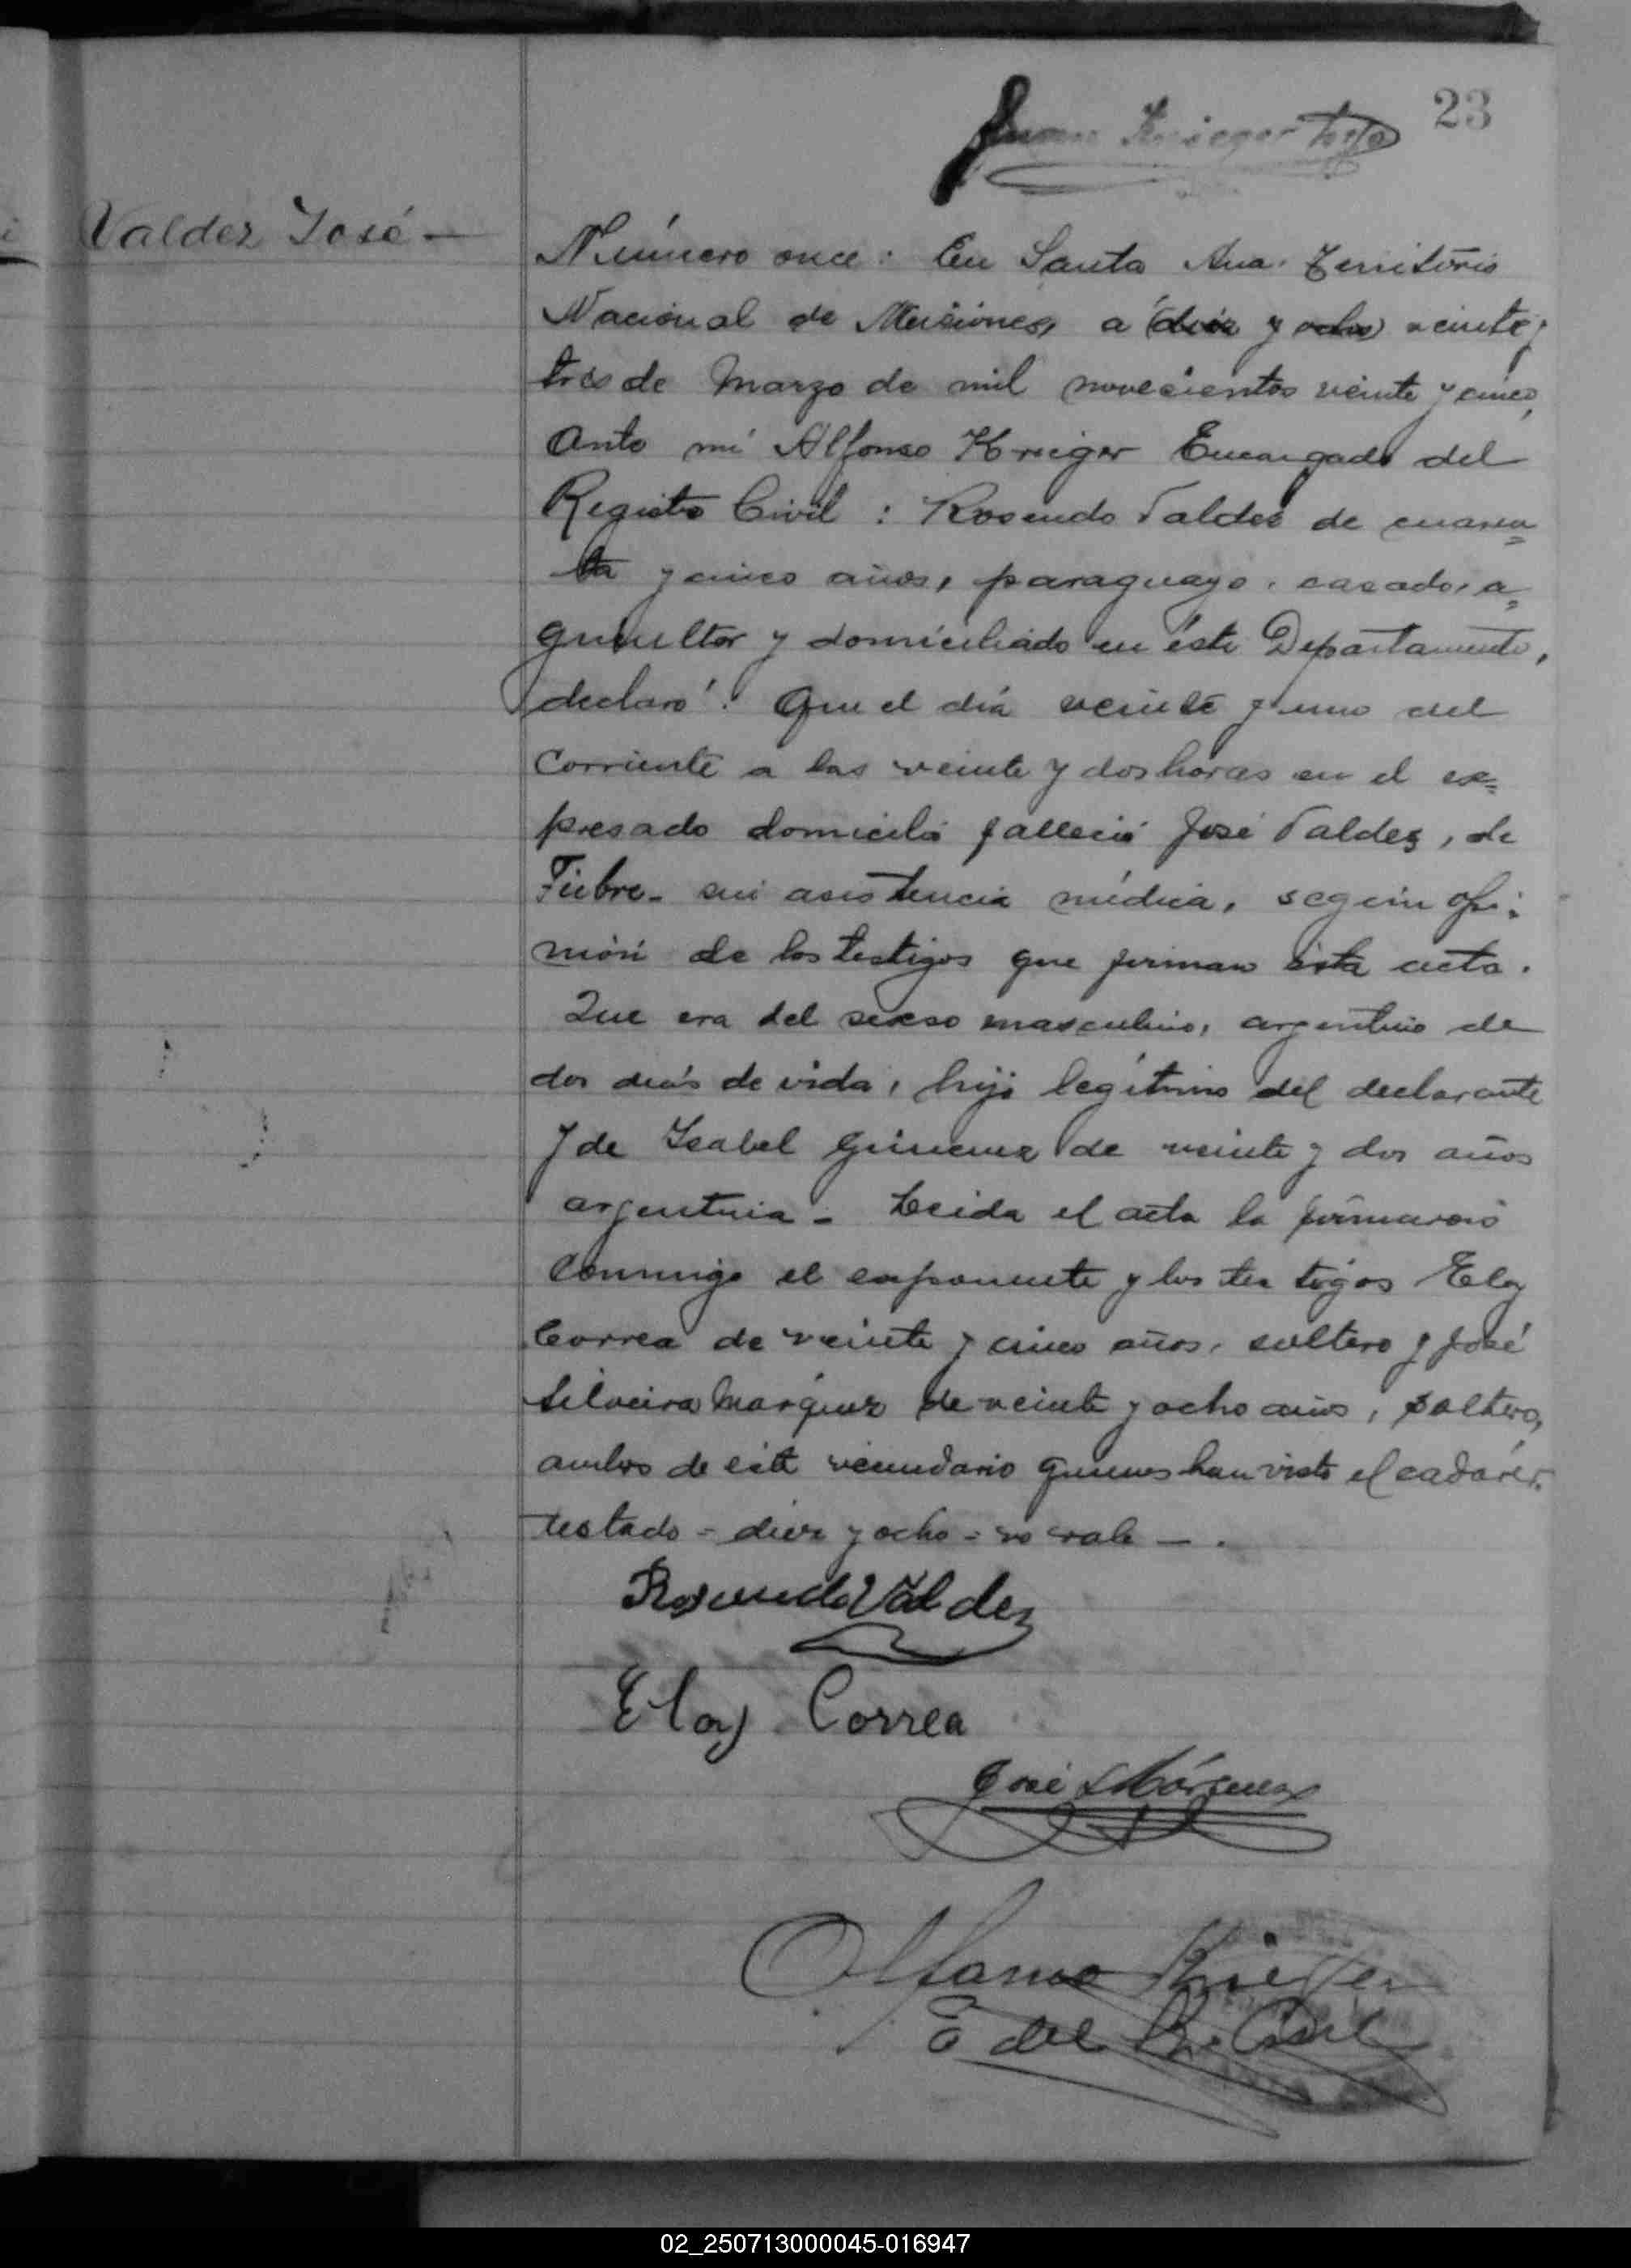 23
Valdez José —
Número once: En Santa Ana. Territorio
Nacional de Misiones, a (diez y ocho) veinte y
tres de Marzo de mil novecientos veinte y cinco,
Ante mí Alfonso Krieger Encargado del
Registro Civil: Rosendo Valdez de cuaren=
ta y cinco años, paraguayo, casado, a=
gricultor y domiciliado en éste Departamento,
declaró: Que el día veinte y uno del
corriente a las veinte y dos horas en el ex=
presado domicilio falleció José Valdez, de
Fiebre- sin asistencia médica, según opi=
nión de los testigos que firman ésta acta.
Que era del sexso masculino, argentino de
dos días de vida, hijo legítimo del declarante
y de Isabel Gimenez de veinte y dos años
argentina - Leida el acta la firmaron
conmigo el exponente y los testigos Eloy
Correa de veinte y cinco años, soltero y José
Silveira Marquez de veinte y ocho años, soltero,
ambos de éste vecindario quienes han visto el cadáver.
testado = diez y ocho = no vale — .
Rosendo Valdez
Eloy Correa
José S Márquez
Alfonso Krieger
E del R. Civil
02_250713000045-016947